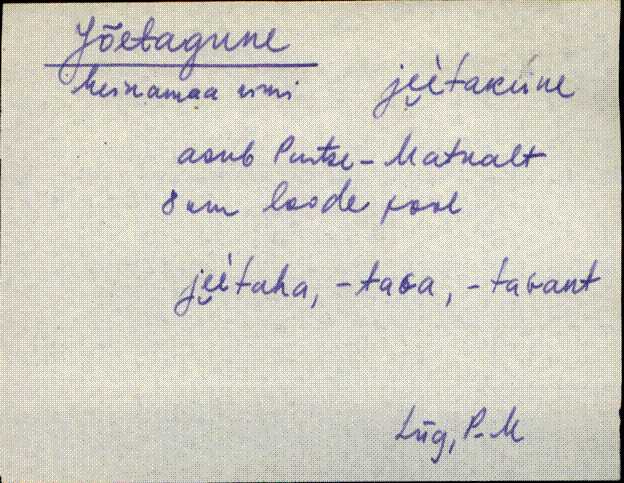 Jõetagune
heinamaa nimi je̮ètakùne
asub Purtse-Matkalt
8 km loode pool
je̮ètaha, -taɢa, -taɢant
Lüg, P-M